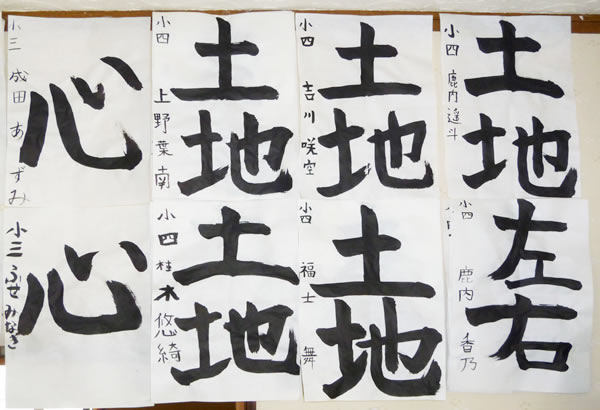 小三 成田 あずみ
心
小四 上野葉南
土地
小四 吉川咲空
土地
小四 鹿内遥斗
土地
小三 ふせみなぎ
心
小四 桂木悠綺
土地
小四 福士 舞
土地
小四 鹿内香乃
左右